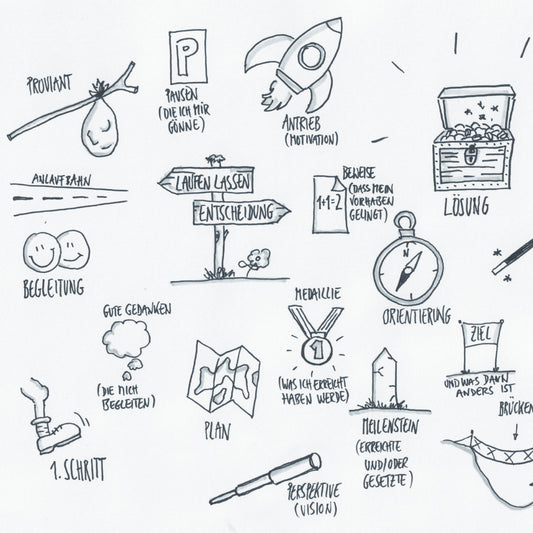 PROVIANT
P
PAUSEN
(DIE ICH MIR
GÖNNE)
ANTRIEB
(MOTIVATION)
LÖSUNG
ANLAUFBAHN
LAUFEN LASSEN
ENTSCHEIDUNG
1+1=2
BEWEISE
(DASS MEIN
VORHABEN
GELINGT)
BEGLEITUNG
N
ORIENTIERUNG
GUTE GEDANKEN
(DIE MICH
BEGLEITEN)
PLAN
MEDAILLIE
1
(WAS ICH ERREICHT
HABEN WERDE)
ZIEL
UND WAS DANN
ANDERS IST
BRÜCKEN
MEILENSTEIN
(ERREICHTE
UND/ODER
GESETZTE)
1. SCHRITT
PERSPEKTIVE
(VISION)